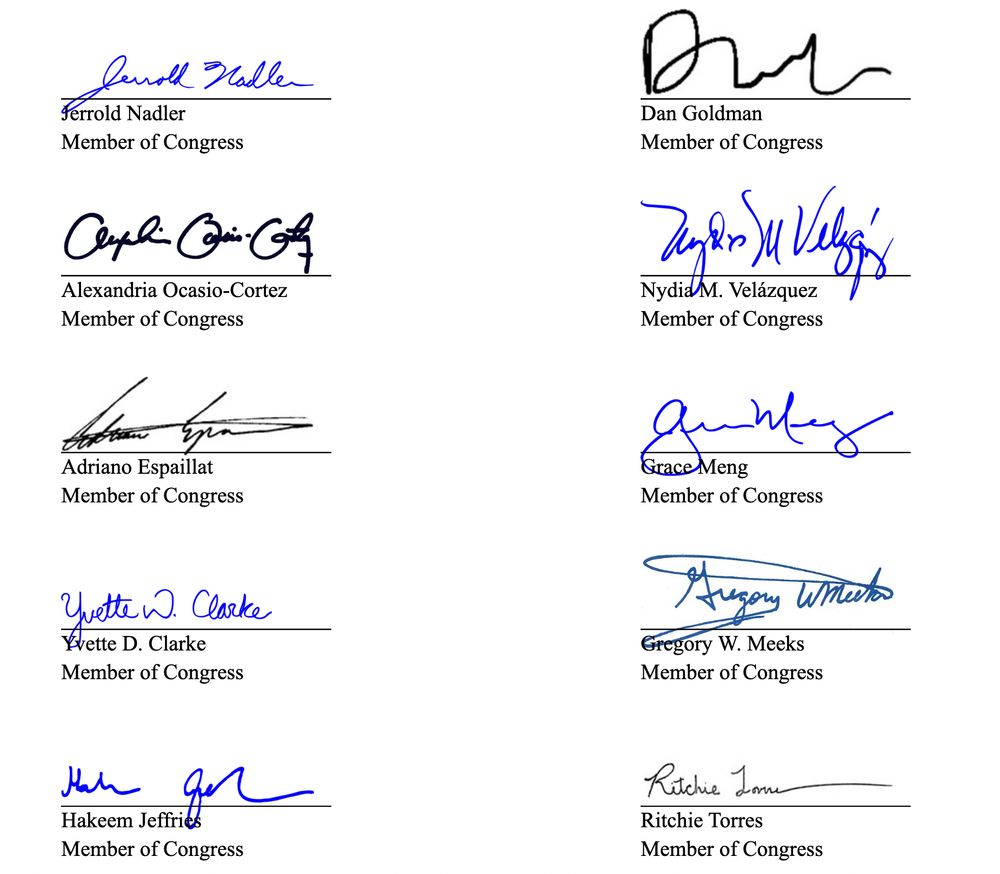 Jerrold Nadler
Jerrold Nadler
Member of Congress
Dan Goldman
Member of Congress
Alexandria Ocasio-Cortez
Member of Congress
Nydia M Velázquez
Nydia M. Velázquez
Member of Congress
Adriano Espaillat
Member of Congress
Grace Meng
Grace Meng
Member of Congress
Yvette D. Clarke
Yvette D. Clarke
Member of Congress
Gregory W Meeks
Gregory W. Meeks
Member of Congress
Hakeem Jeffries
Member of Congress
Ritchie Torres
Ritchie Torres
Member of Congress